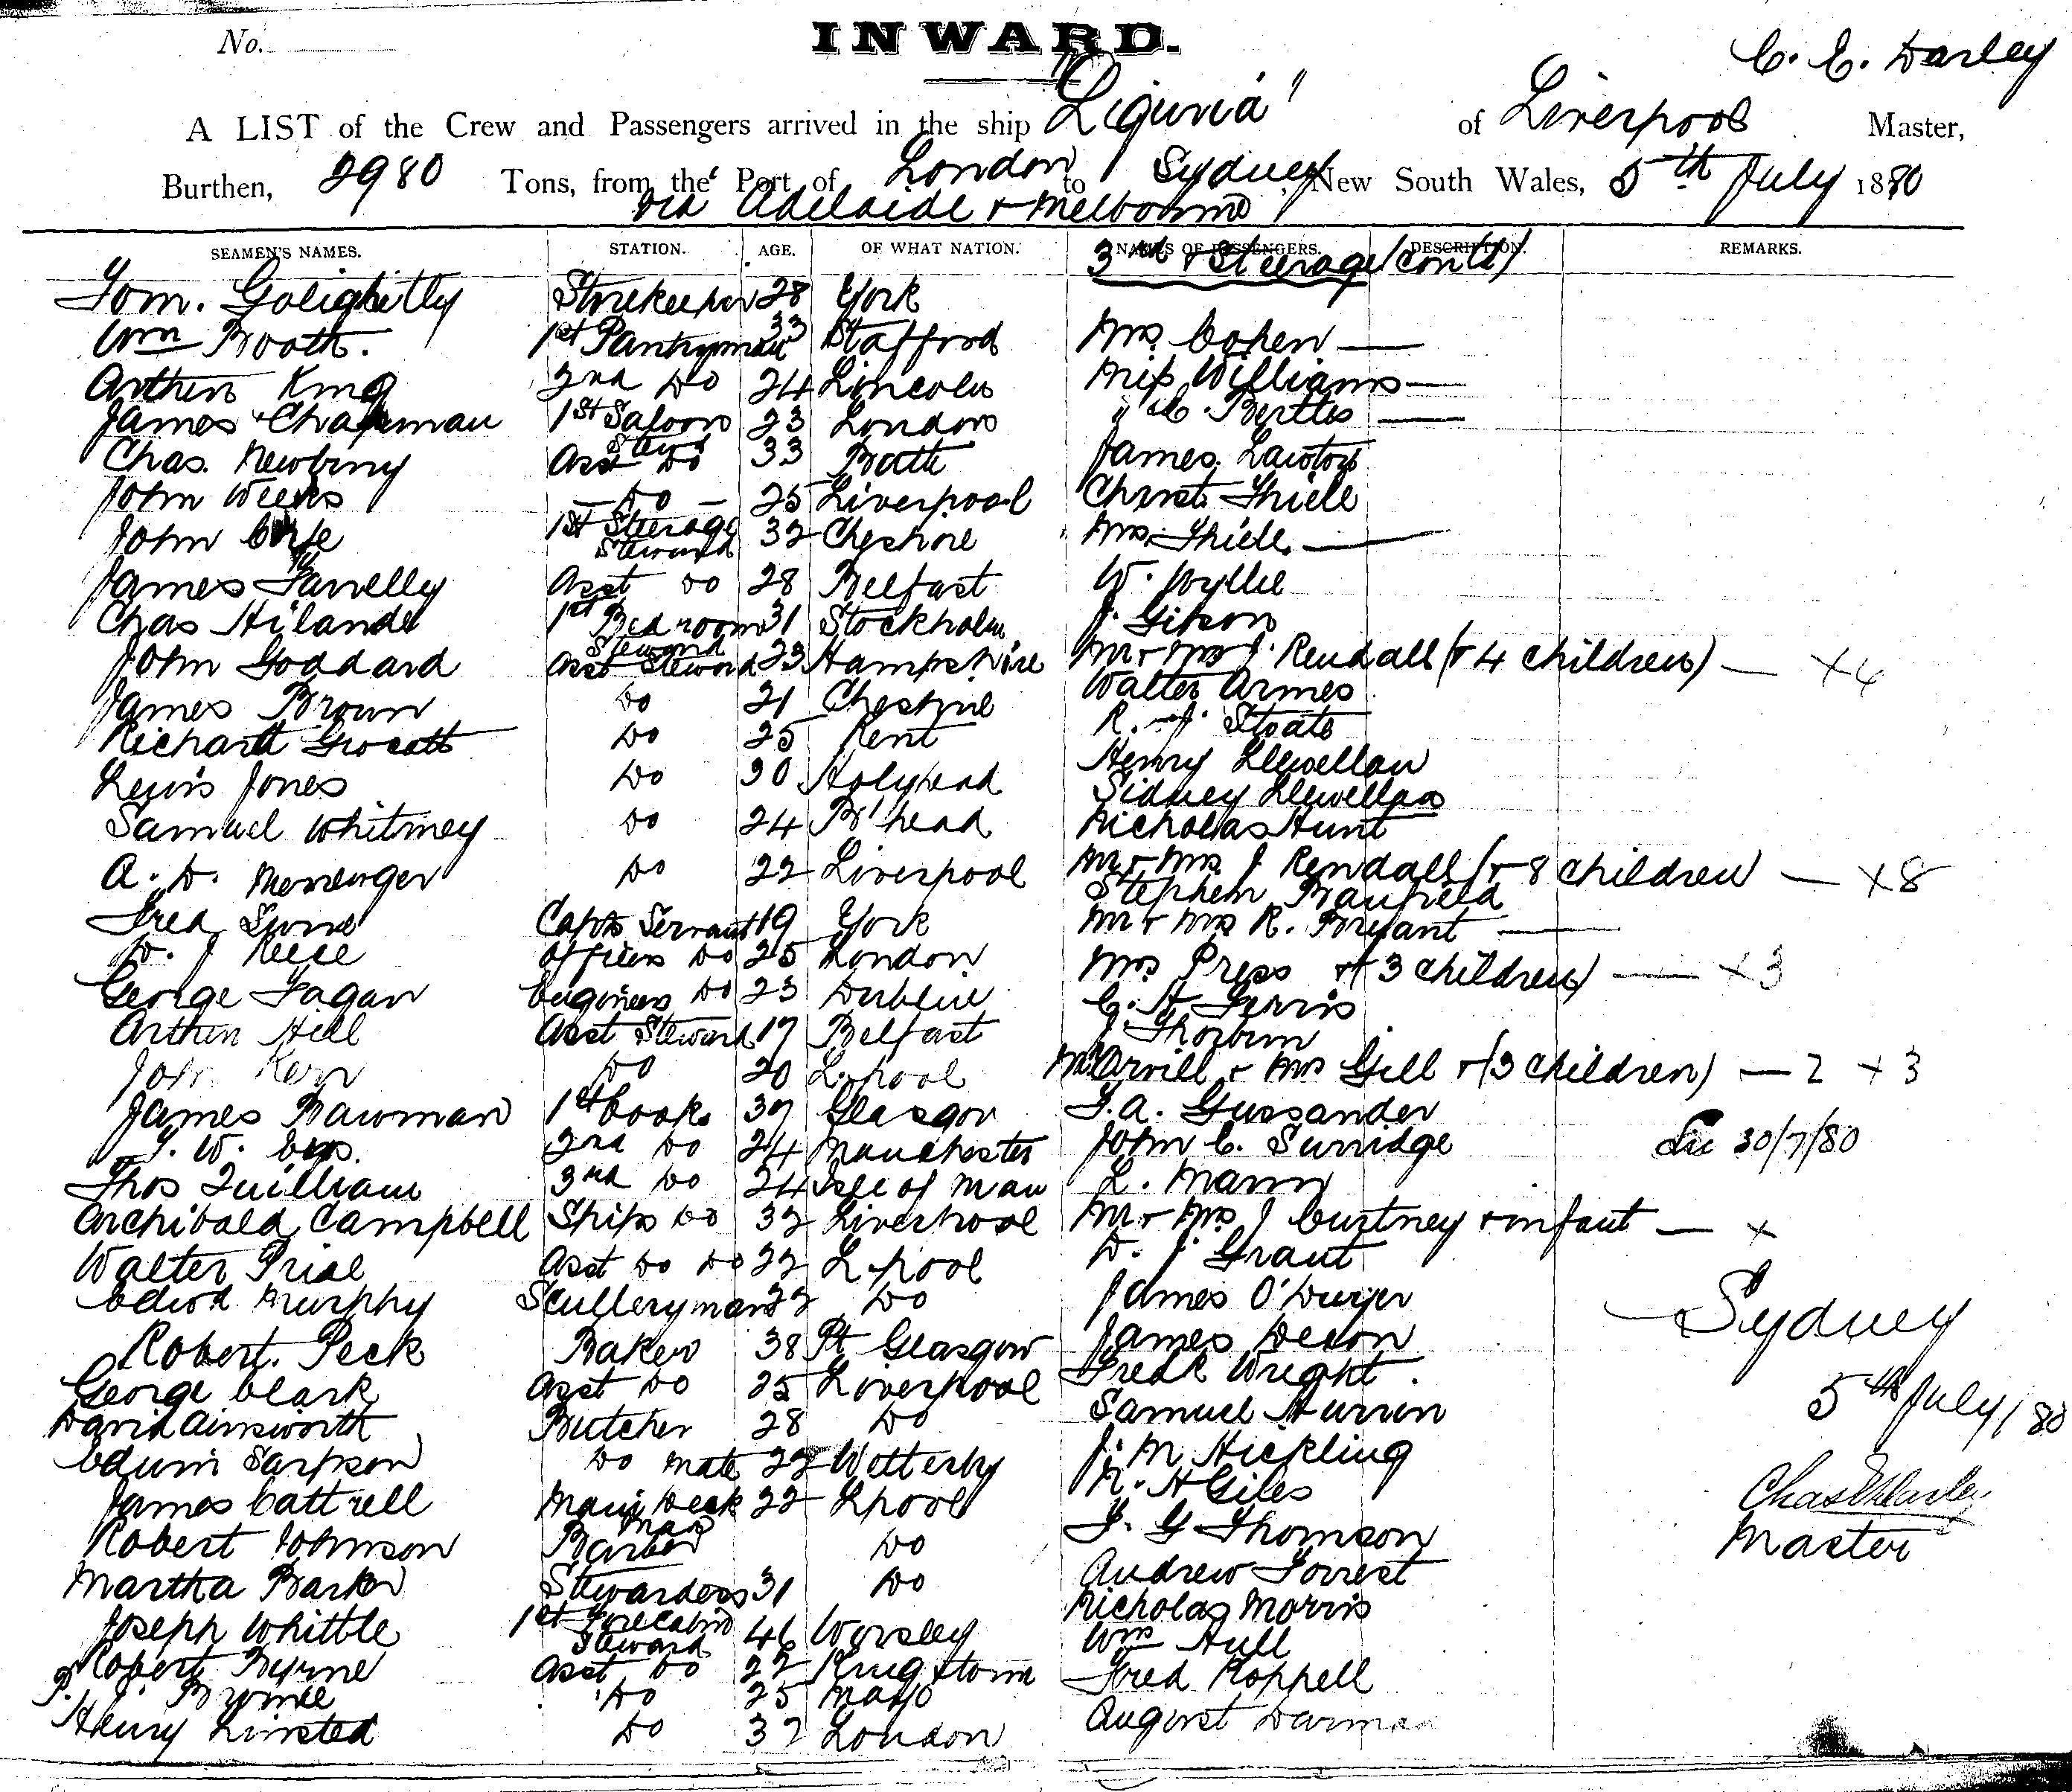 No.
INWARD.
C. E. Darley
A LIST of the Crew and Passengers arrived in the ship "Liguria" of Liverpool Master,
Burthen, 2980 Tons, from the Port of London to Sydney, New South Wales, 5th July 1880
via Adelaide & Melbourne
SEAMEN'S NAMES. STATION. AGE. OF WHAT NATION. NAMES OF PASSENGERS. DESCRIPTION. REMARKS.
3rd & Steerage (contd)
Tom. Golightly Storekeeper 28 York
Wm Booth. 1st Pantryman 33 Stafford Mrs. Cohen —
Arthur King 2nd Do 24 Lincoln Miss Williams —
James Chapman 1st Saloon Stewd 23 London " C. Bertles —
Chas. Newbiny Asst Do 33 Bath James Lawton
John Weeks — Do — 25 Liverpool Christ. Thiele
John 1st Steerage Steward 32 Cheshire Mrs. Thiele —
James Farrelly Asst Do 28 Belfast W. Wyllie
Chas Hilande 1st Bedroom Steward 31 Stockholm J. Gibson
John Goddard Asst Steward 23 Hampshire Mr & Mrs J. Rendall (& 4 children) — × 4
James Brown Do 21 Cheshire Walter Armes
Richard Grocott Do 25 Kent R. J. Stoate
Lewis Jones Do 30 Holyhead Henry Llewellan
Sidney Llewellan
Samuel Whitmey Do 24 B'head Nicholas Hunt
A. D. Messenger Do 22 Liverpool Mr & Mrs J Rendall (& 8 children — × 8
Stephen Banfield
Fred Lunn Capts Servant 19 York Mr & Mrs R. Bryant —
D. J Reece Officers Do 25 London Mrs Press & 3 children) — × 3
George Fagan Engineers Do 23 Dublin C. H Ferris
Arthur Hill Asst Steward 17 Belfast J Thorburn
John Kerr Do 20 L.pool Mr Arvill & Mrs Gill & (3 children) — 2 × 3
James Bawman 1st Cook 37 Glasgow F. A. Gussander
T. W. 2nd Do 24 Manchester John C. Surridge 30/7/80
Thos Quilliam 3rd Do 24 Isle of Man L. Mann
Archibald Campbell Ships Do 32 Liverpool Mr & Mrs J Curtney & infant — ×
Walter Prial Asst Do Do 22 L.pool D. J. Grant
Edwd Murphy Scullery man 22 Do James O'Dwyer
Sydney
Robert. Peck Baker 38 Pt Glasgow James Dexon
George Clark Asst Do 25 Liverpool Fredk Wright.
5th July/80
David Ainsworth Butcher 28 Do Samuel Hurren
Edwin Sarpson Do Mate 22 Wetterby J. M. Hickling
James Cattrell Main Deck Man 22 Lpool N. H Giles
Chas E Darley
Robert Johnson Barber Do J. G Thomson
Master
Martha Barker Stewardess 31 Do Andrew Forrest
Nicholas Morris
Joseph Whittle 1st Forecabin Steward 46 Worsley Wm Hull
Robert Byrne Asst Do 22 Kingstown Fred Koppell
P. J. Byrne Do 25 Mayo
Henry Linsted Do 37 London August Darman